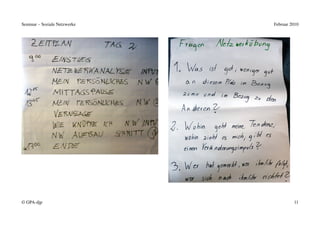 Seminar – Soziale Netzwerke
Februar 2010
ZEITPLAN TAG 2
9:00 EINSTIEG
NETZWERKANALYSE INPUT
MEIN PERSÖNLICHES NW
MITTAGSPAUSE
MEIN PERSÖNLICHES NW
VERNISSAGE
WIE KNÜPFE ICH NW
NW AUFBAU SCHRITT
ENDE
Fragen Netzwerkübung
1. Was ist gut, weniger gut
an diesem Platz im Bezug
zum und im Bezug zu den
Anderen?
2. Wohin geht meine Tendenz,
wohin zieht es mich, gibt es
einen Veränderungsimpuls?
3. Wer hat gemerkt, wer ihm/ihr folgt,
wer sich nach ihm/ihr richtet?
© GPA-djp
11